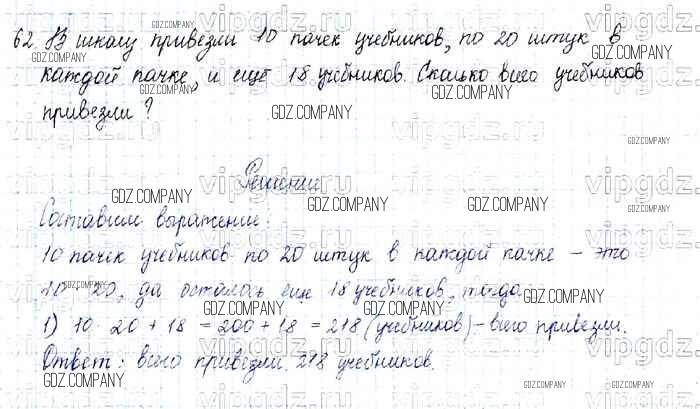 62. В школу привезли 10 пачек учебников, по 20 штук в
каждой пачке, и ещё 18 учебников. Сколько всего учебников
привезли?
Решение
Составим выражение:
10 пачек учебников по 20 штук в каждой пачке – это
10 · 20, да осталось ещё 18 учебников, тогда
1) 10 · 20 + 18 = 200 + 18 = 218 (учебников) – всего привезли.
Ответ: всего привезли 218 учебников.
GDZ.COMPANY
vipgdz.ru